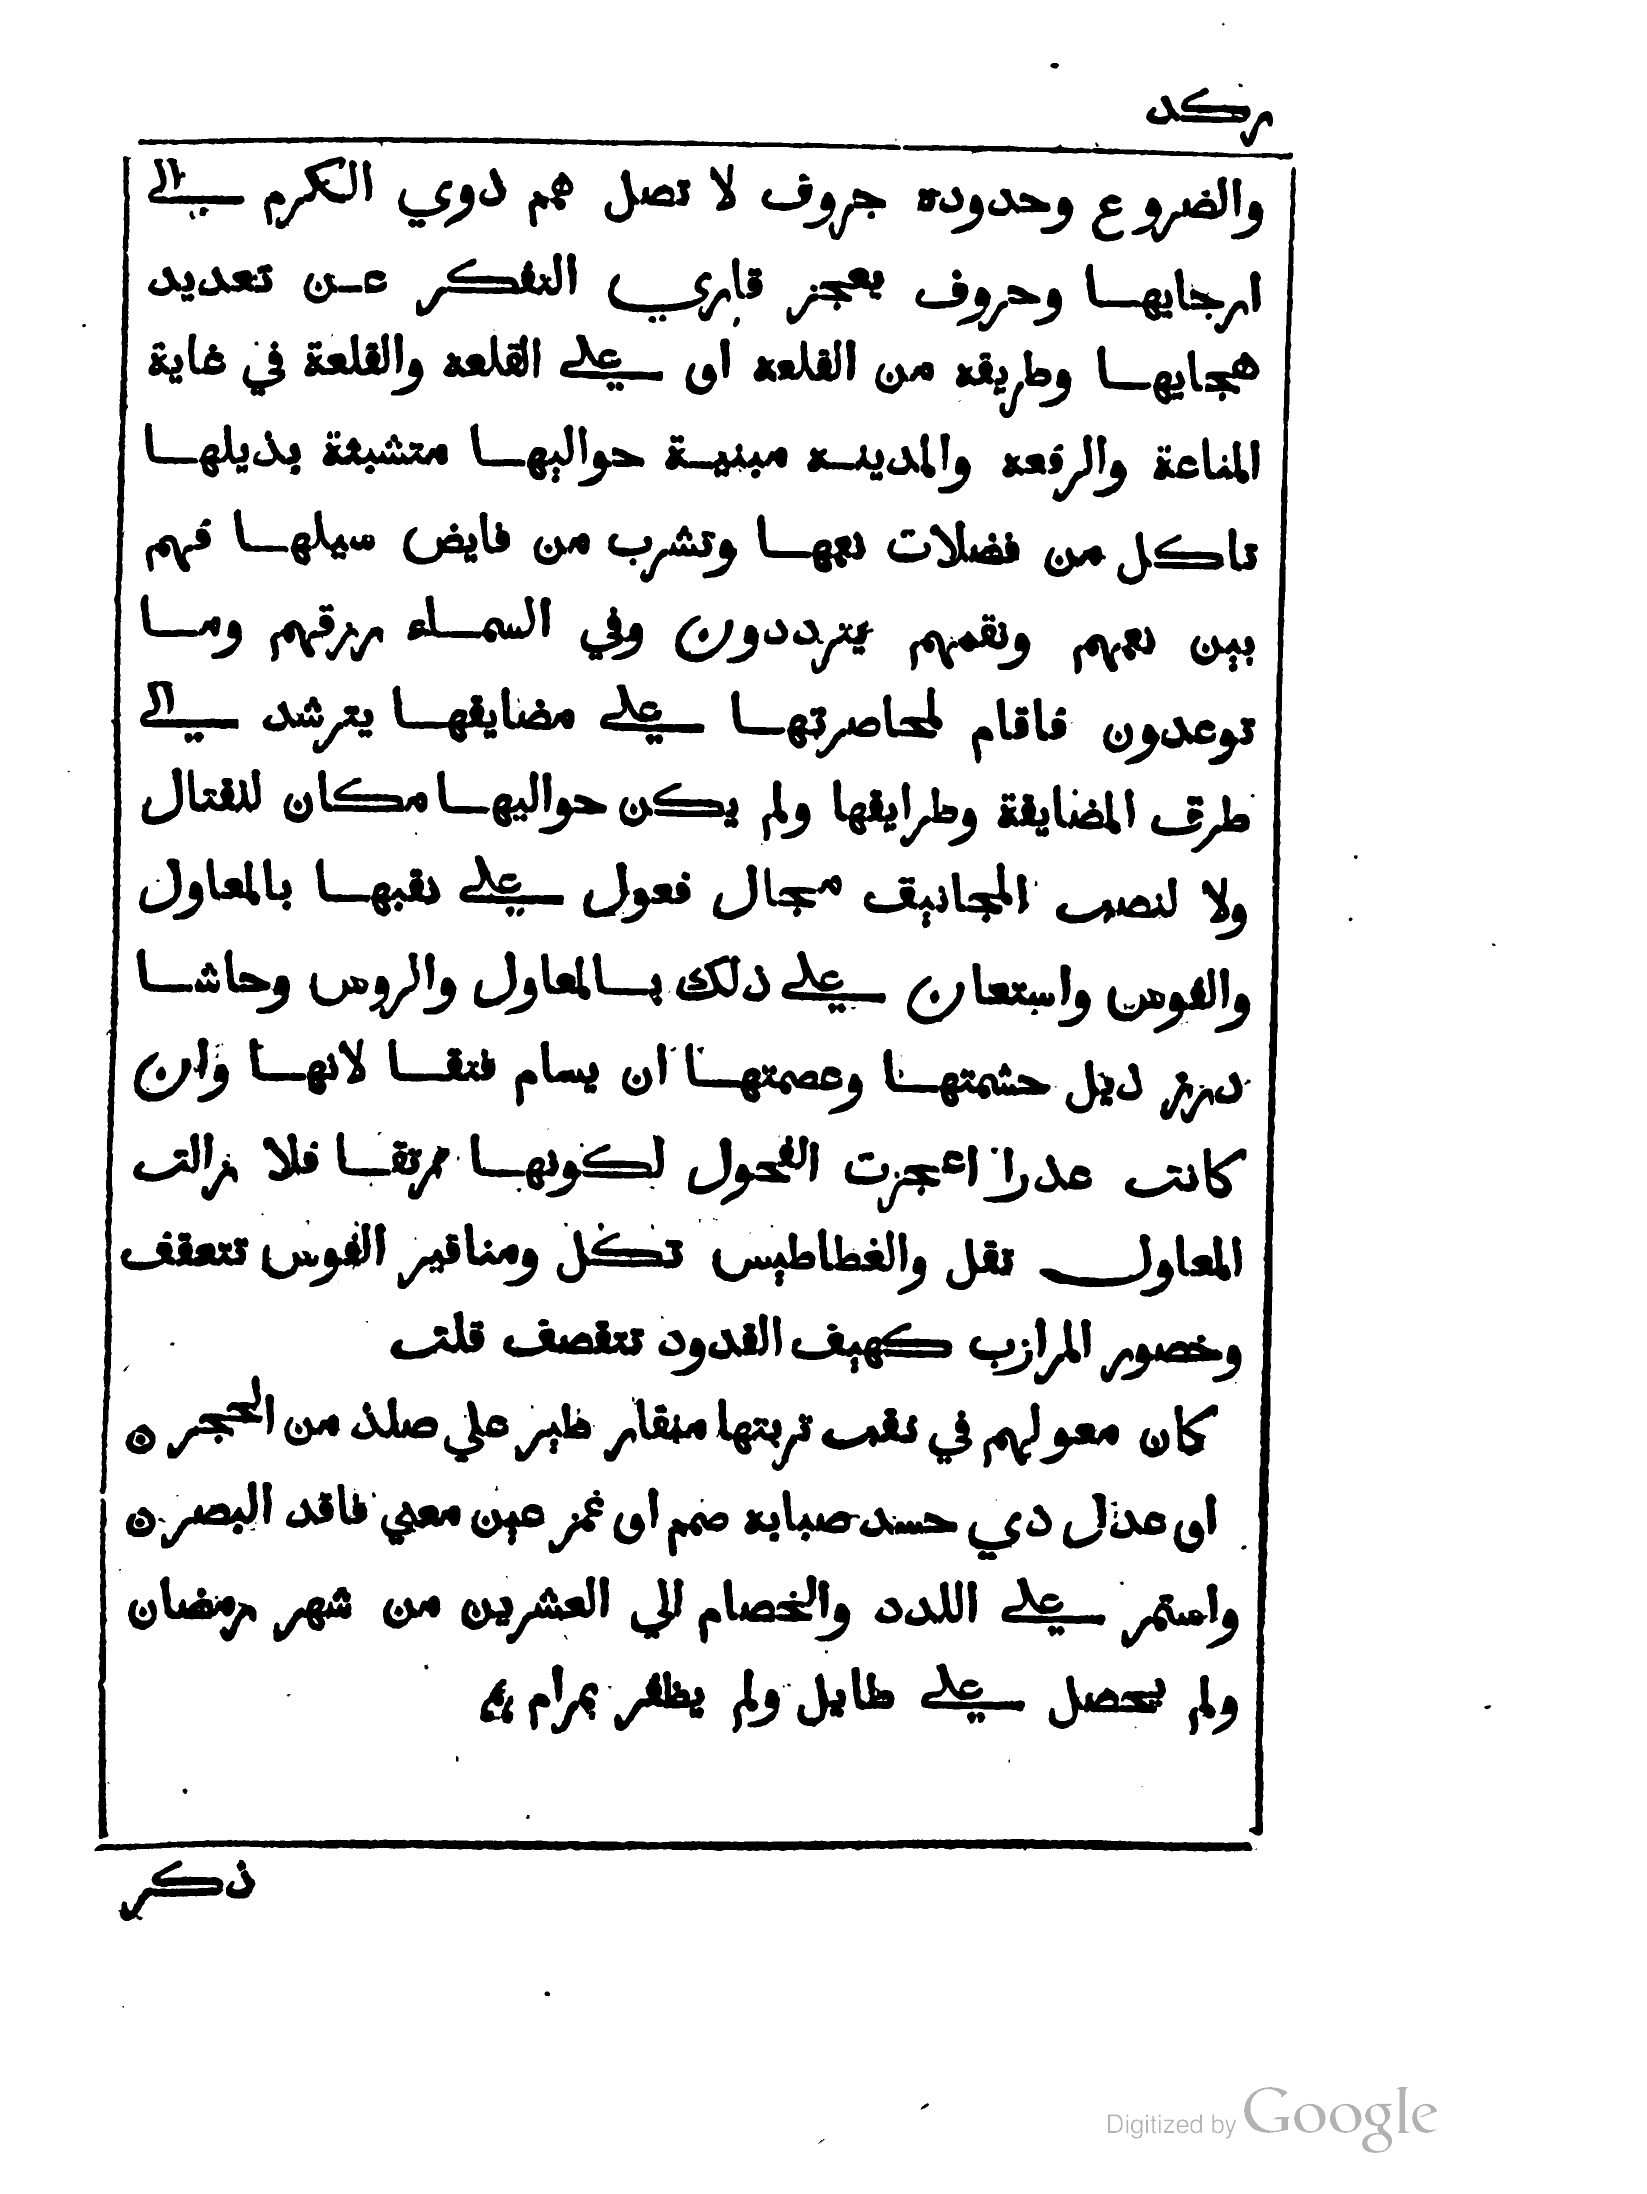 ركد
والضروع وحدوده جروف لا تصل همم ذوي الكرم الي
ارجايها وحروف يعجز قاري التفكر عن تعديد
هجايها وطريقه من القلعه او علي القلعه والقلعة في غاية
المناعة والرفعه والمدينه مبنية حواليها متشبثة بذيلها
تاكل من فضلات نعمها وتشرب من فايض سيلها فهم
بين نعمهم ونقمهم يترددون وفي السماء رزقهم وما
توعدون فاقام لمحاصرتها علي مضايقها يترشد الي
طرق المضايقة وطرايقها ولم يكن حواليها مكان للقتال
ولا لنصب المجانيق مجال فعول علي نقبها بالمعاول
والفوس واستعان علي ذلك بالمعاول والروس وحاشا
درز ذيل حشمتها وعصمتها ان يسام فتقا لانها وان
كانت عذرا اعجزت الفحول لكونها مرتقا فلا زالت
المعاول تقل والغطاطيس تكل ومناقير الفوس تتعقف
وخصور المرازب كهيف القدود تتقصف قلت
كان معولهم في نقب تربتها منقار طير علي صلد من الحجر ه
او عذل ذي حسد صبابه صمم او غمز عين معني فاقد البصر ه
واستمر علي اللدد والخصام الي العشرين من شهر رمضان
ولم يحصل علي طايل ولم يظفر بمرام
ذكر
Digitized by Google